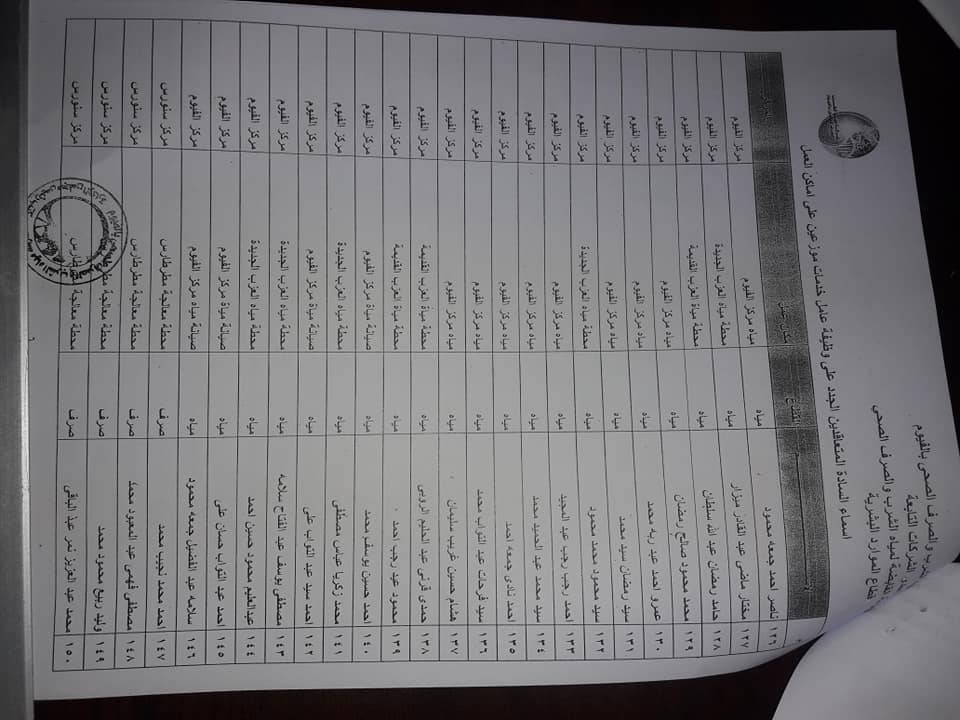 الشرب والصرف الصحى بالفيوم
الشركات التابعة
القابضة لمياه الشرب والصرف الصحي
قطاع الموارد البشرية
اسماء السادة المتعاقدين الجدد على وظيفة عامل خدمات موزعين على اماكن العمل
م الاســـم القطاع مكان العمل
١٢٦ ناصر احمد جمعه محمود مياه مياه مركز الفيوم مركز الفيوم
١٢٧ مختار ماضى عبد القادر ميزار مياه مياه مركز الفيوم مركز الفيوم
١٢٨ حامد رمضان عبد الله سلطان مياه محطة مياه العزب الجديدة مركز الفيوم
١٢٩ محمد محمود صالح رمضان مياه محطة مياه العزب القديمة مركز الفيوم
١٣٠ عمرو احمد عبد ربه محمد مياه مياه مركز الفيوم مركز الفيوم
١٣١ سيد رمضان سيد محمد مياه مياه مركز الفيوم مركز الفيوم
١٣٢ سيد محمود محمد محمود مياه مياه مركز الفيوم مركز الفيوم
١٣٣ احمد رجب رجب عبد المجيد مياه محطة مياه العزب الجديدة مركز الفيوم
١٣٤ سيد محمد عبد الحميد محمد مياه مياه مركز الفيوم مركز الفيوم
١٣٥ احمد نادى جمعه احمد مياه مياه مركز الفيوم مركز الفيوم
١٣٦ سيد فرحات عبد التواب محمد مياه مياه مركز الفيوم مركز الفيوم
١٣٧ هشام حسين غريب سليمان مياه مياه مركز الفيوم مركز الفيوم
١٣٨ حمدى قرنى عبد الحليم الروبى مياه محطة مياة العزب القديمة مركز الفيوم
١٣٩ محمود عيد رجب احمد مياه محطة مياة العزب القديمة مركز الفيوم
١٤٠ احمد حسين يوسف محمد مياه صيانة مياة مركز الفيوم مركز الفيوم
١٤١ محمد زكريا عباس مصطفى مياه محطة مياه العزب الجديدة مركز الفيوم
١٤٢ احمد سيد عبد التواب على مياه صيانة مياة مركز الفيوم مركز الفيوم
١٤٣ مصطفى يوسف عبد الفتاح سلامه مياه محطة مياه العزب الجديدة مركز الفيوم
١٤٤ عبدالعليم محمود حسين احمد مياه محطة مياه العزب الجديدة مركز الفيوم
١٤٥ احمد عبد التواب حسان على مياه صيانة مياة مركز الفيوم مركز الفيوم
١٤٦ سلامه عبد الفضيل جمعه محمود مياه صيانة مياه مركز الفيوم مركز الفيوم
١٤٧ احمد محمد نجيب محمد صرف محطة معالجة مطرطارس مركز سنورس
١٤٨ مصطفى فهمى عبد المعبود محمد صرف محطة معالجة مطرطارس مركز سنورس
١٤٩ وليد ربيع محمود محمد صرف محطة معالجة مطرطارس مركز سنورس
١٥٠ محمد عبد العزيز نمر عبد الباقى صرف محطة معالجة مطرطارس مركز سنورس
٦